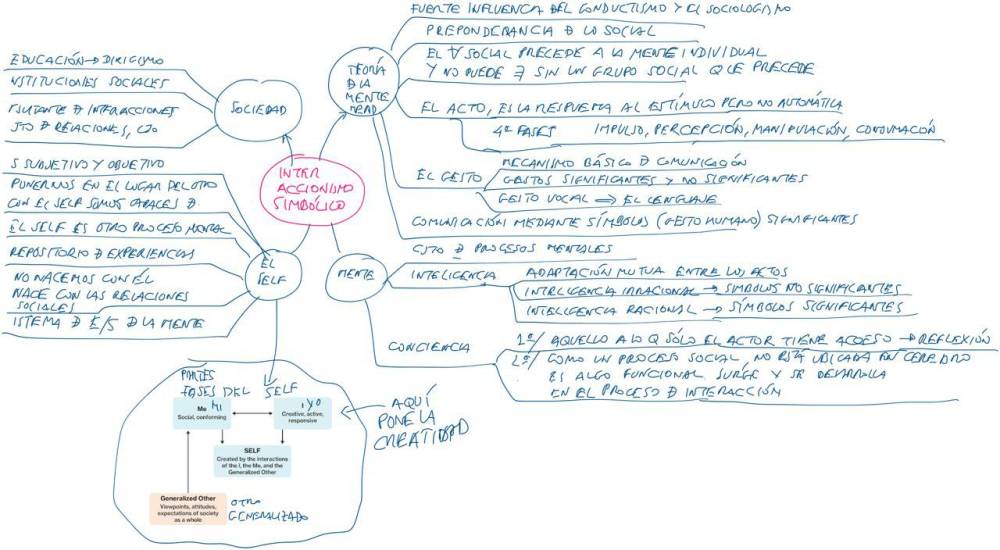 INTER
ACCIONISMO
SIMBÓLICO
TEORÍA
D LA
MENTE
MEAD
FUERTE INFLUENCIA DEL CONDUCTISMO Y EL SOCIOLOGISMO
PREPONDERANCIA D LO SOCIAL
EL ∀ SOCIAL PRECEDE A LA MENTE INDIVIDUAL
Y NO PUEDE ∃ SIN UN GRUPO SOCIAL QUE PRECEDE
EL ACTO, ES LA RESPUESTA AL ESTÍMULO PERO NO AUTOMÁTICA
FASES IMPULSO, PERCEPCIÓN, MANIPULACIÓN, CONSUMACIÓN
EL GESTO
MECANISMO BÁSICO D COMUNICACIÓN
GESTOS SIGNIFICANTES Y NO SIGNIFICANTES
GESTO VOCAL ⇒ EL LENGUAJE
COMUNICACIÓN MEDIANTE SÍMBOLOS (GESTO HUMANO) SIGNIFICANTES
MENTE
CJTO D PROCESOS MENTALES
INTELIGENCIA
ADAPTACIÓN MUTUA ENTRE LOS ACTOS
INTELIGENCIA IRRACIONAL → SIMBOLOS NO SIGNIFICANTES
INTELIGENCIA RACIONAL → SÍMBOLOS SIGNIFICANTES
CONCIENCIA
1º/ AQUELLO A LO Q SÓLO EL ACTOR TIENE ACCESO → REFLEXIÓN
2º/ COMO UN PROCESO SOCIAL, NO ESTÁ UBICADA EN CEREBRO
ES ALGO FUNCIONAL. SURGE Y SE DESARROLLA
EN EL PROCESO D INTERACCIÓN
SOCIEDAD
EDUCACIÓN → DIRIGISMO
NSTITUCIONES SOCIALES
D INTERACCIONES
D RELACIONES,
EL
SELF
S SUBJETIVO Y OBJETIVO
PONERNOS EN EL LUGAR DEL OTRO
CON EL SELF SOMOS CAPACES D
EL SELF ES OTRO PROCESO MENTAL
REPOSITORIO D EXPERIENCIAS
NO NACEMOS CON ÉL
NACE CON LAS RELACIONES
SOCIALES
ISTEMA D E/S D LA MENTE
PARTES
FASES DEL SELF
Me MI
Social, conforming
I YO
Creative, active,
responsive
SELF
Created by the interactions
of the I, the Me, and the
Generalized Other
Generalized Other
Viewpoints, attitudes,
expectations of society
as a whole
OTRO
GENERALIZADO
AQUÍ
PONE LA
CREATIDAD